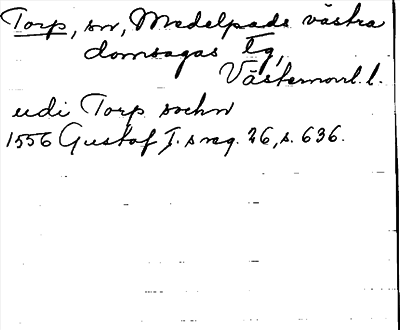 Torp, sn, Medelpads västra
domsagas tg,
Västernorrl. l.
udi Torp sochn
1556 Gustaf I.s reg. 26, s. 636.